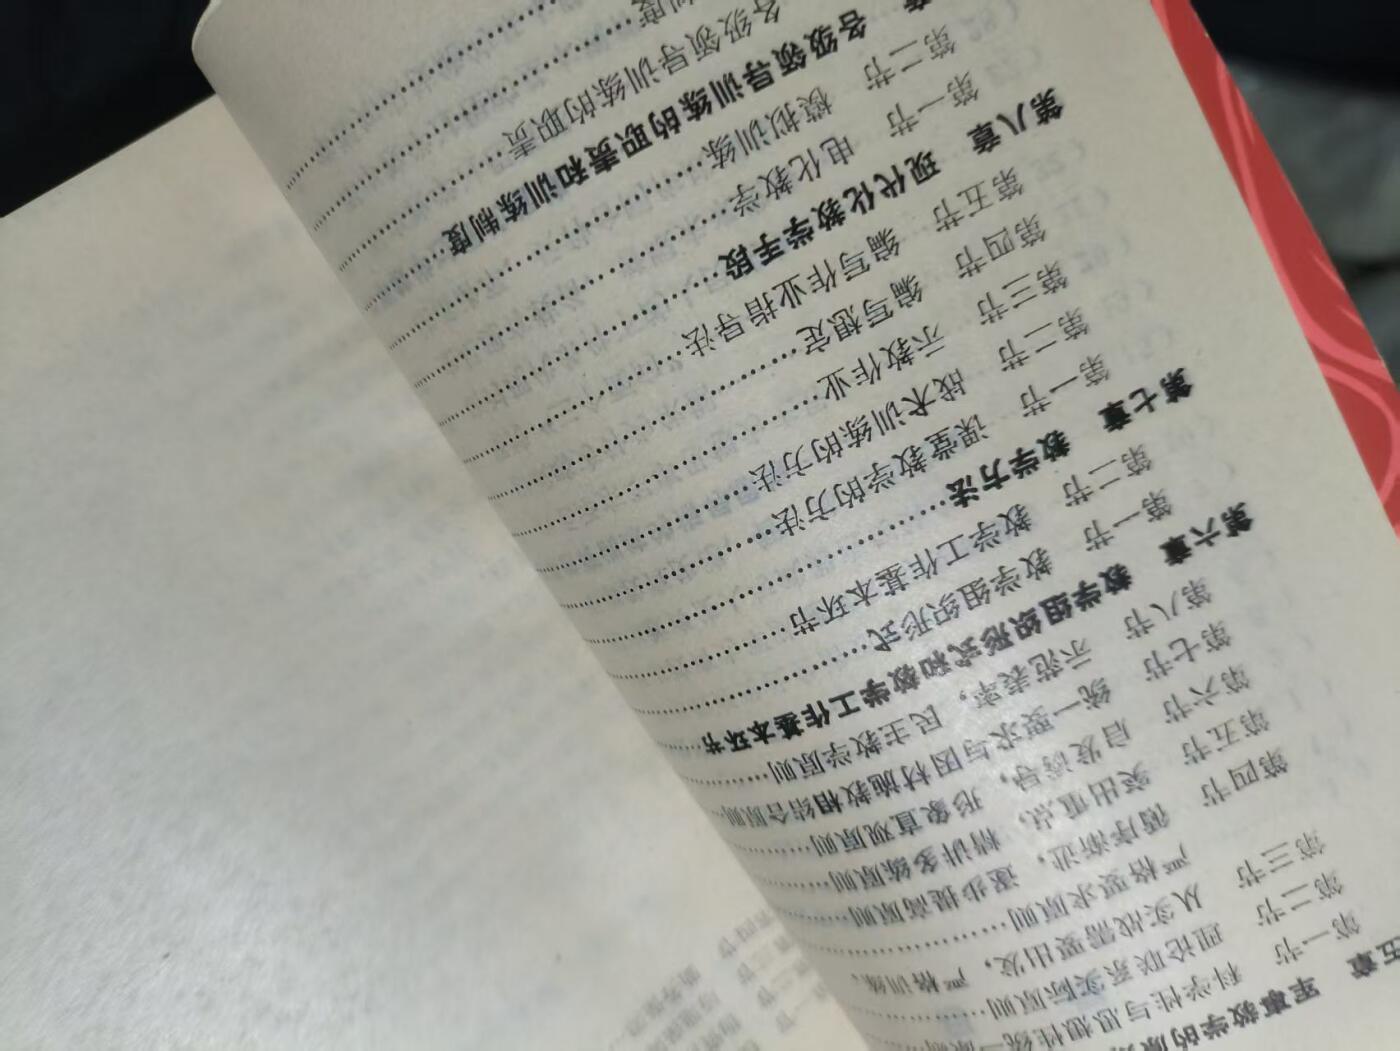 军事教学的原
第一节 科学性与思想性统一原则
第二节 理论联系实际原则
第三节 从实战需要出发，严格训练、
严格要求原则
第四节 循序渐进，逐步提高原则
第五节 突出重点，精讲多练原则
第六节 启发诱导，形象直观原则
第七节 统一要求与因材施教相结合原则
第八节 示范表率，民主教学原则
第六章 教学组织形式和教学工作基本环节
第一节 教学组织形式
第二节 教学工作基本环节
第七章 教学方法
第一节 课堂教学的方法
第二节 战术训练的方法
第三节 示教作业
第四节 编写想定
第五节 编写作业指导法
第八章 现代化教学手段
第一节 电化教学
第二节 模拟训练
各级领导训练的职责和训练制度
各级领导训练的职责
制度